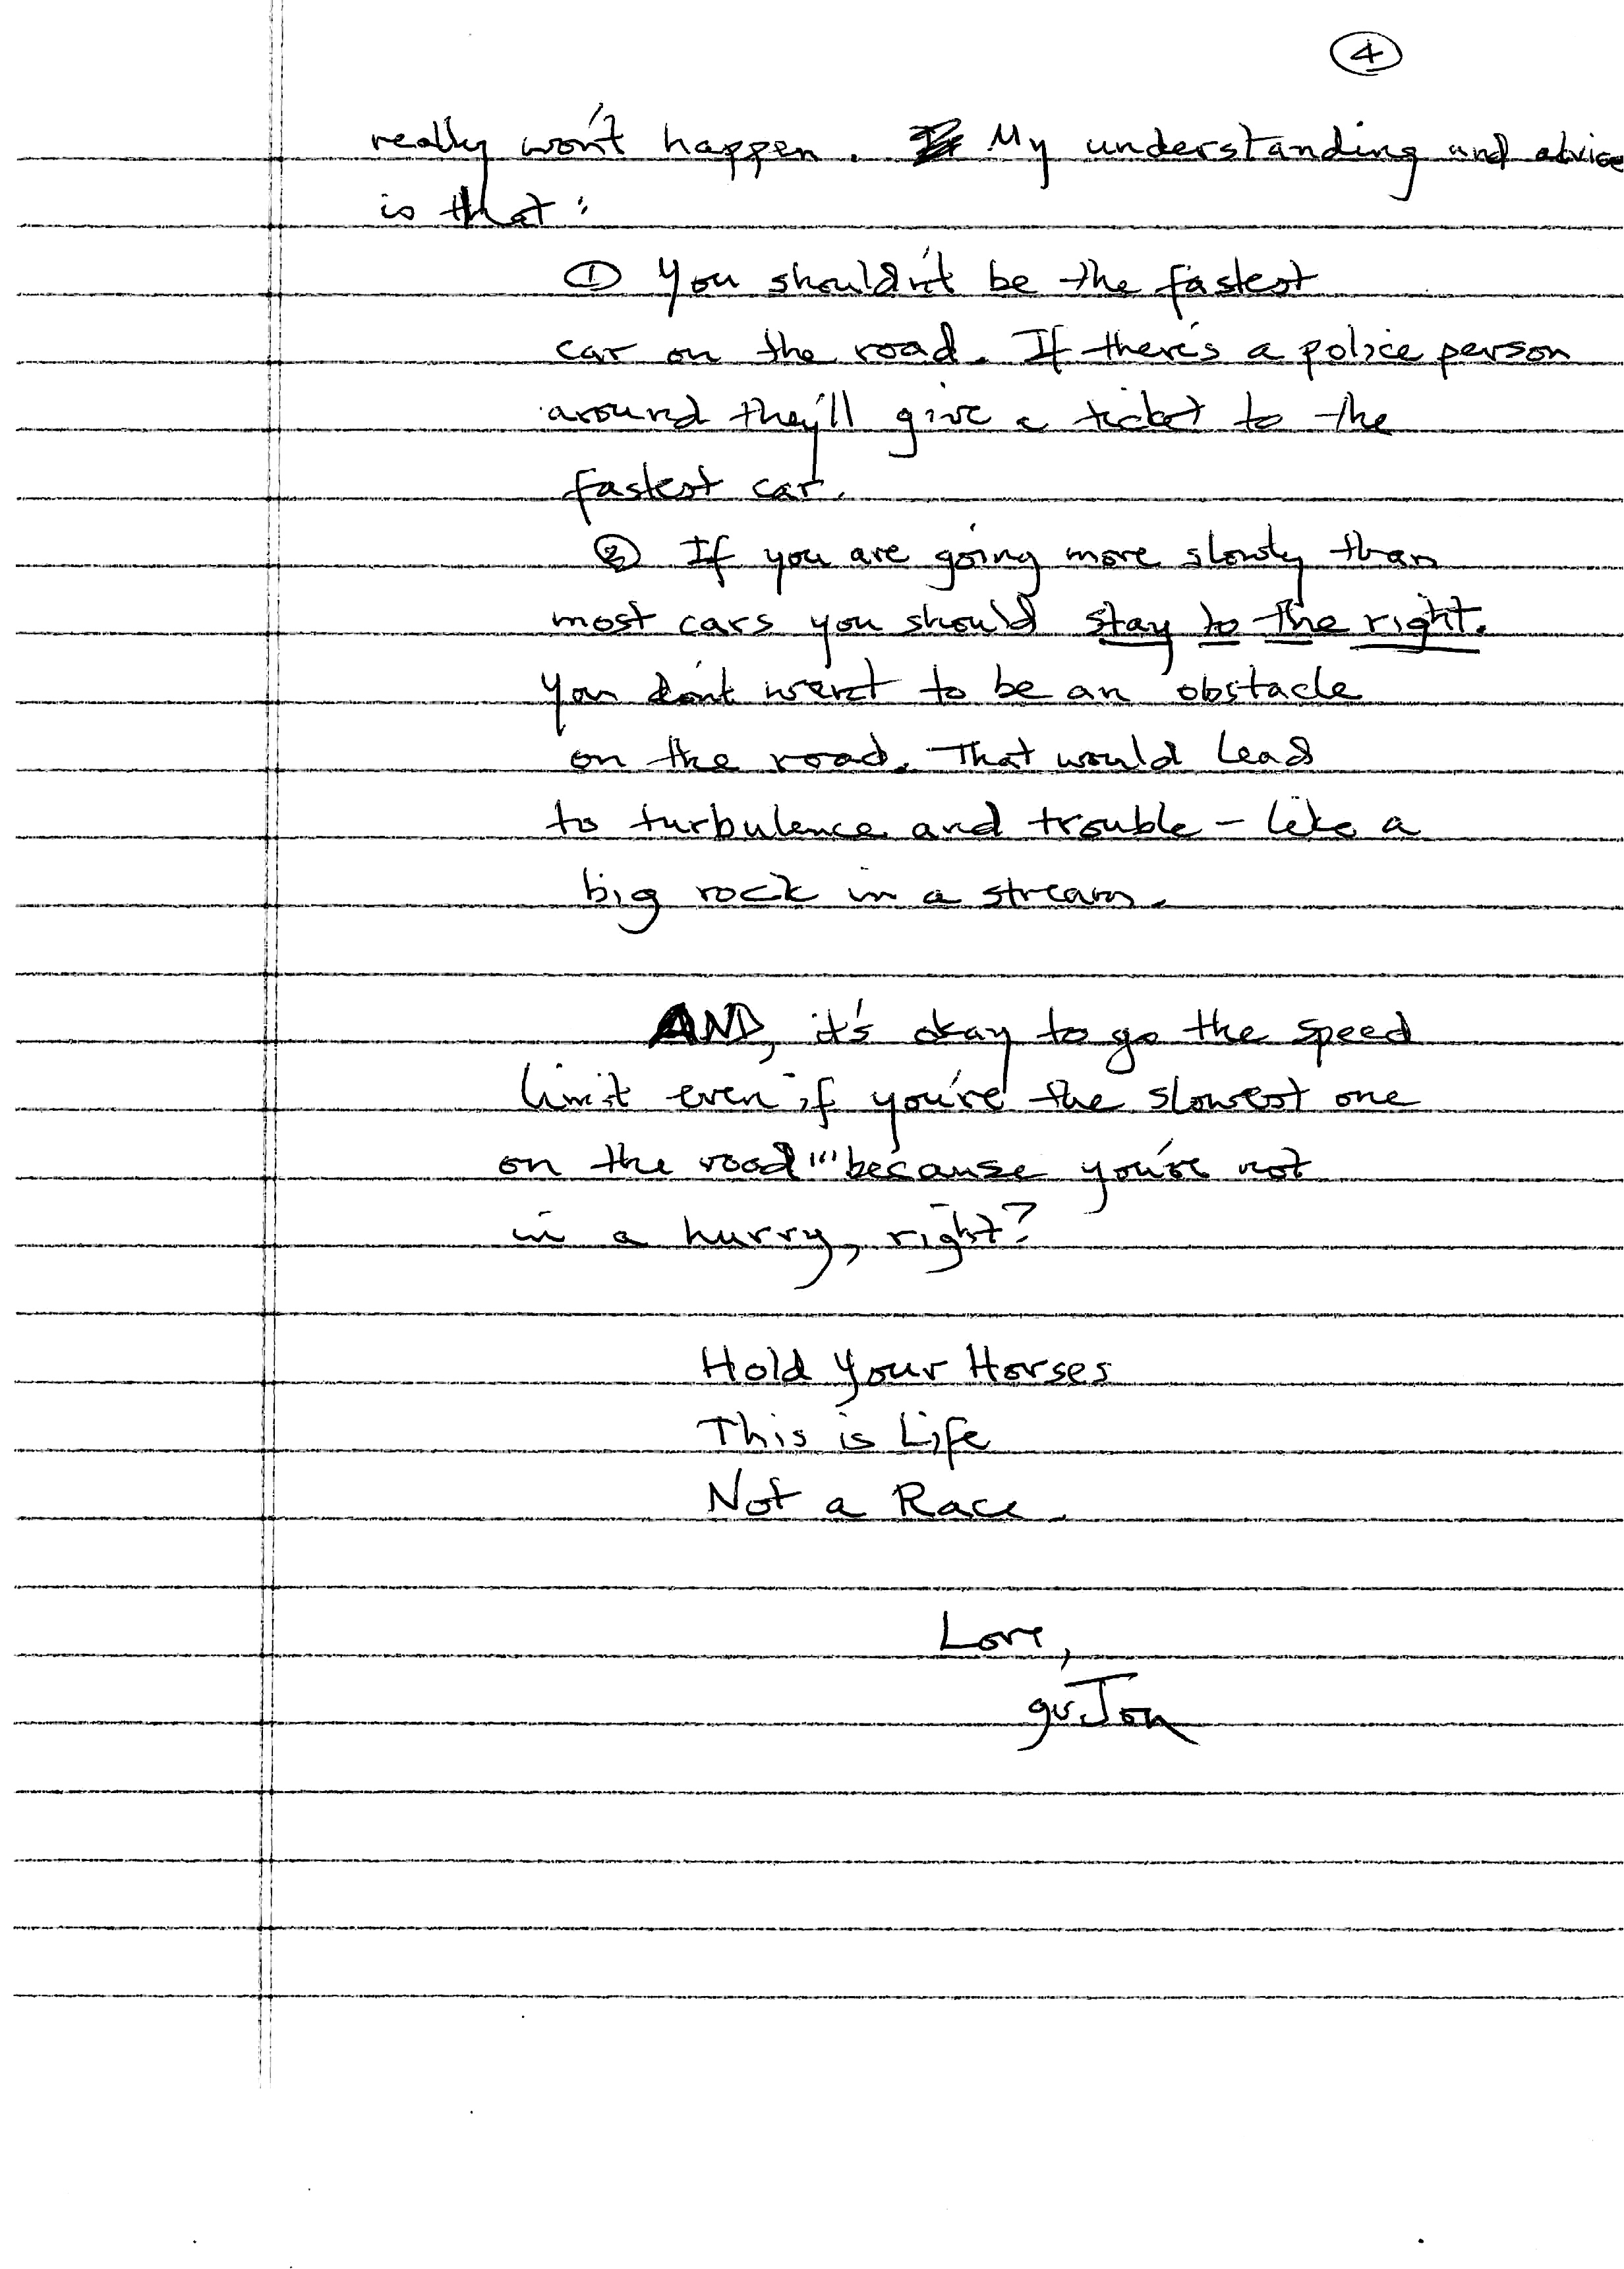 ④
really won't happen. My understanding and advice
is that:
① You shouldn't be the fastest
car on the road. If there's a police person
around they'll give a ticket to the
fastest car.
② If you are going more slowly than
most cars you should stay to the right.
You don't want to be an obstacle
on the road. That would lead
to turbulence and trouble - like a
big rock in a stream.
AND, it's okay to go the speed
limit even if you're the slowest one
on the road ''' because you're not
in a hurry, right?
Hold Your Horses
This is Life
Not a Race.
Love,
guJon